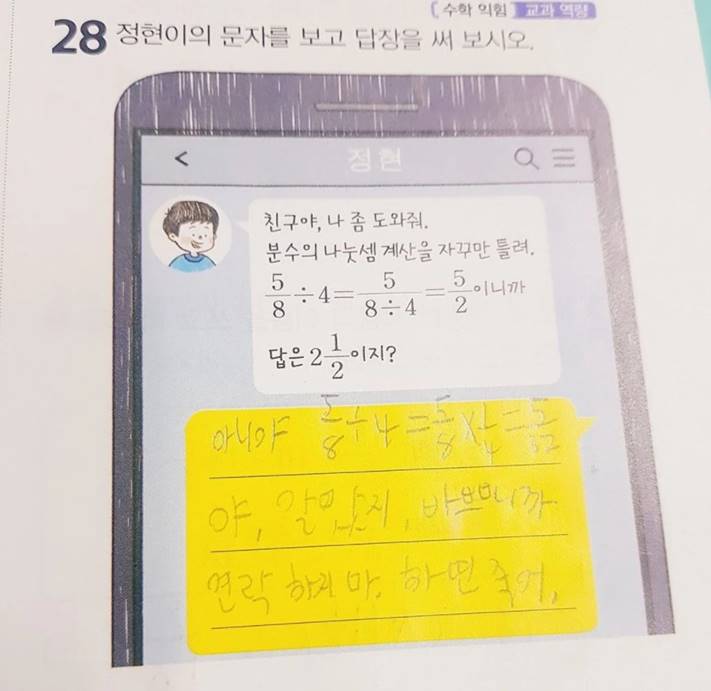 수학 익힘 교과 역량
28 정현이의 문자를 보고 답장을 써 보시오.
< 정현
친구야, 나 좀 도와줘.
분수의 나눗셈 계산을 자꾸만 틀려.
5/8 ÷ 4 = 5/(8÷4) = 5/2 이니까
답은 2 1/2 이지?
아니야 5/8 ÷ 4 = 5/8 × 1/4 = 5/32
야, 알았지, 바쁘니까
연락 하지 마. 하면 죽어.